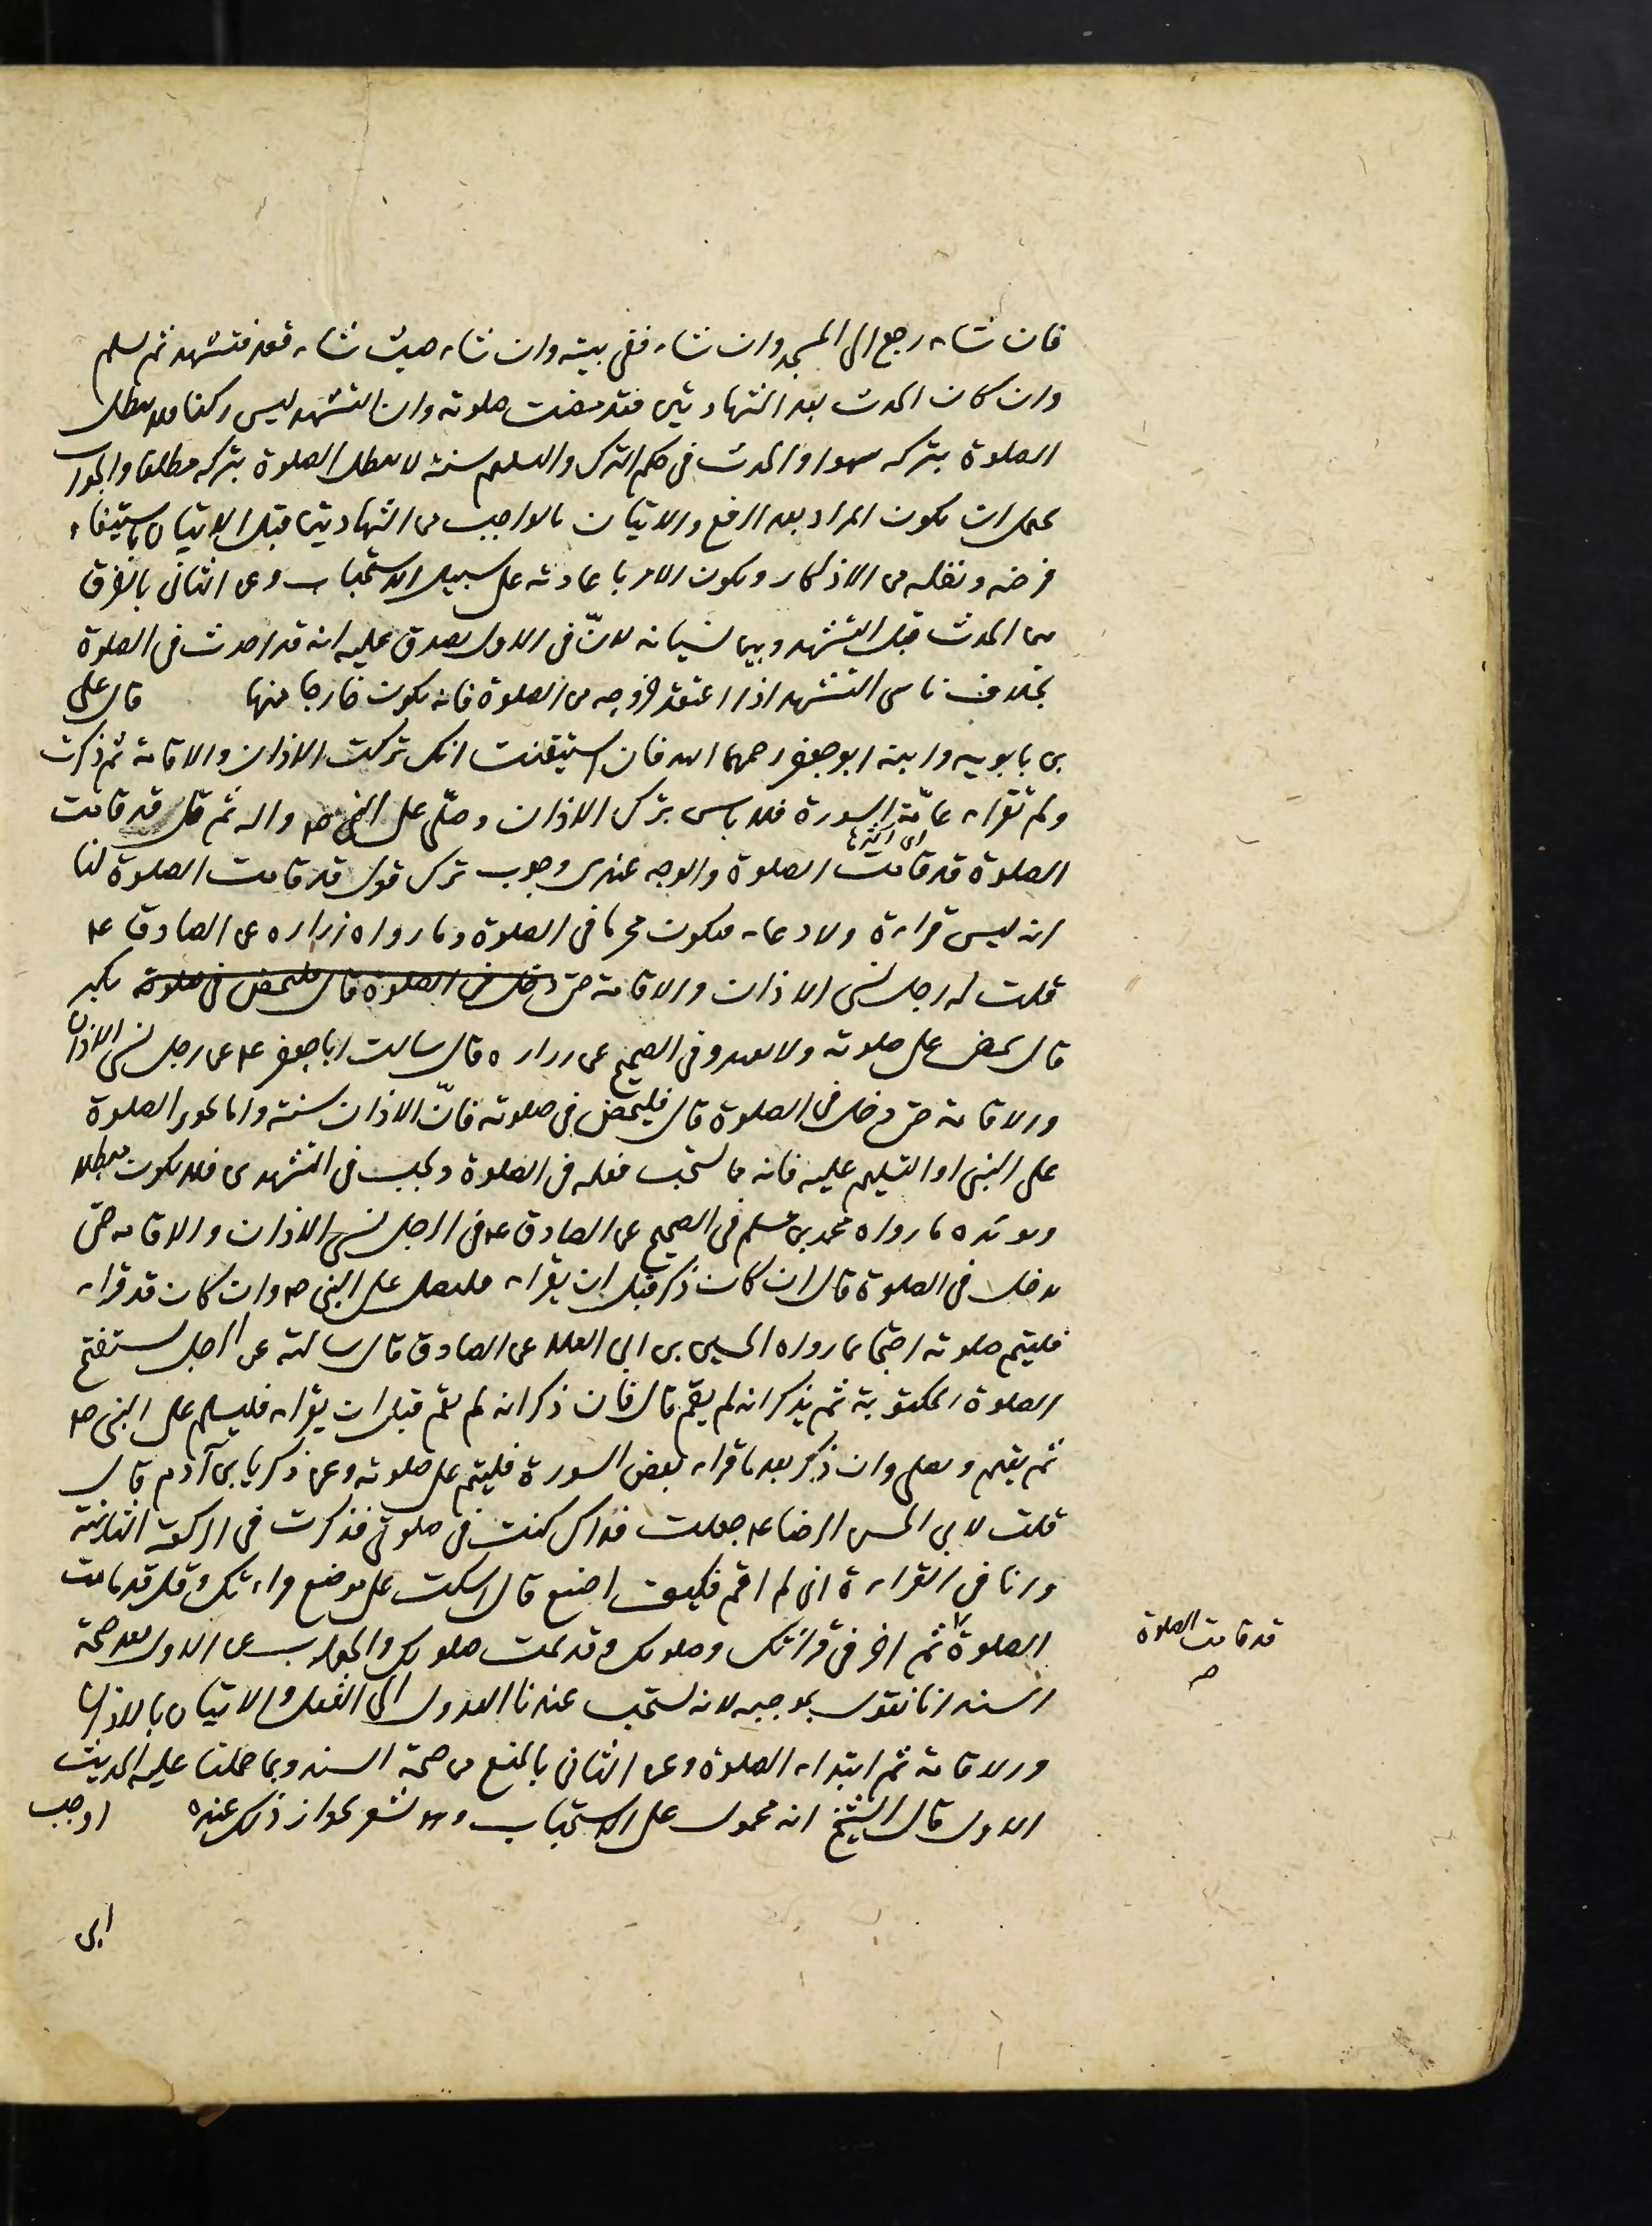 فان شاء رجع الى المسجد وان شاء ففى بيته وان شاء حيث شاء قعد فتشهد ثم يسلم
وان كان الحدث بعد الشهادتين فقد مضت صلوته وان التشهد ليس ركنا فلا يبطل
الصلوة بتركه سهوا والحدث فى حكم الترك والتسليم سنة لا يبطل الصلوة بتركه مطلقا والجواب
يحتمل ان يكون المراد بعد الرفع والاتيان بالواجب من الشهادتين قبل الاتيان باستيفاء
فرضه ونفله من الاذكار ويكون الامر باعادته على سبيل الاستحباب وعن الثانى بالفرق
بين الحدث قبل التشهد وبين نسيانه لانّ فى الاول يصدق عليه انه قد احدث فى الصلوة
بخلاف ناسى التشهد اذا اعتقد خروجه من الصلوة فانه يكون خارجا منها قال على
بن بابويه وابنه ابو جعفر رحمهما الله فان استيقنت انك تركت الاذان والاقامة ثم ذكرت
ولم تقراء عامّة السورة فلا باس بترك الاذان وصلّى على النبى ص واله ثم قل قد قامت
اى اكثرها
الصلوة قد قامت الصلوة والوجه عندى وجوب ترك قول قد قامت الصلوة لنا
انه ليس قراءة ولا دعاء فيكون محرما فى الصلوة وما رواه زراره عن الصادق ع
قلت له رجل نسى الاذان والاقامة حتى دخل فى الصلوة قال فليمض فى صلوته يكبر
قال يمض على صلوته ولا يعيد وفى الصحيح عن زراره قال سالت ابا جعفر ع عن رجل نسى الاذان
والاقامة حتى دخل فى الصلوة قال فليمض فى صلوته فانّ الاذان سنة واما تجويز الصلوة
على النبى او التسليم عليه فانه مما يستحب فعله فى الصلوة ويجب فى التشهدين فلا يكون مبطلا
ويؤيده ما رواه محمد بن مسلم فى الصحيح عن الصادق ع فى الرجل نسى الاذان والاقامة حتى
يدخل فى الصلوة قال ان كان ذكر قبل ان يقراء فليصل على النبى ص وان كان قد قراء
فليتم صلوته احتجا بما رواه الحسين بن ابى العلا عن الصادق قال سالته عن الرجل يستفتح
الصلوة المكتوبة ثم يذكر انه لم يقم قال فان ذكر انه لم يقم قبل ان يقراء فليسلم على النبى ص
ثم يقيم ويصلى وان ذكر بعد ما قراء بعض السورة فليتم على صلوته وعن زكريا بن آدم قال
قلت لابى الحسن الرضا ع جعلت فداك كنت فى صلوتى فذكرت فى الركعة الثانية
وانا فى القراءة انى لم اقم فكيف اصنع قال اسكت على موضع قراءتك وقل قد قامت
الصلوة ثم امض فى قرائتك وصلوتك وقد تمت صلوتك والجواب عن الاول بعد صحة
قد قامت الصلوة
السند انا نقول بموجبه لانه يستحب عندنا العدول الى النفل والاتيان بالاذان
والاقامة ثم ابتداء الصلوة وعن الثانى بالمنع من صحة السند وبما حملنا عليه الحديث
الاول قال الشيخ انه محمول على الاستحباب وهو يشعر بجواز ذلك عنده اوجب
ابن